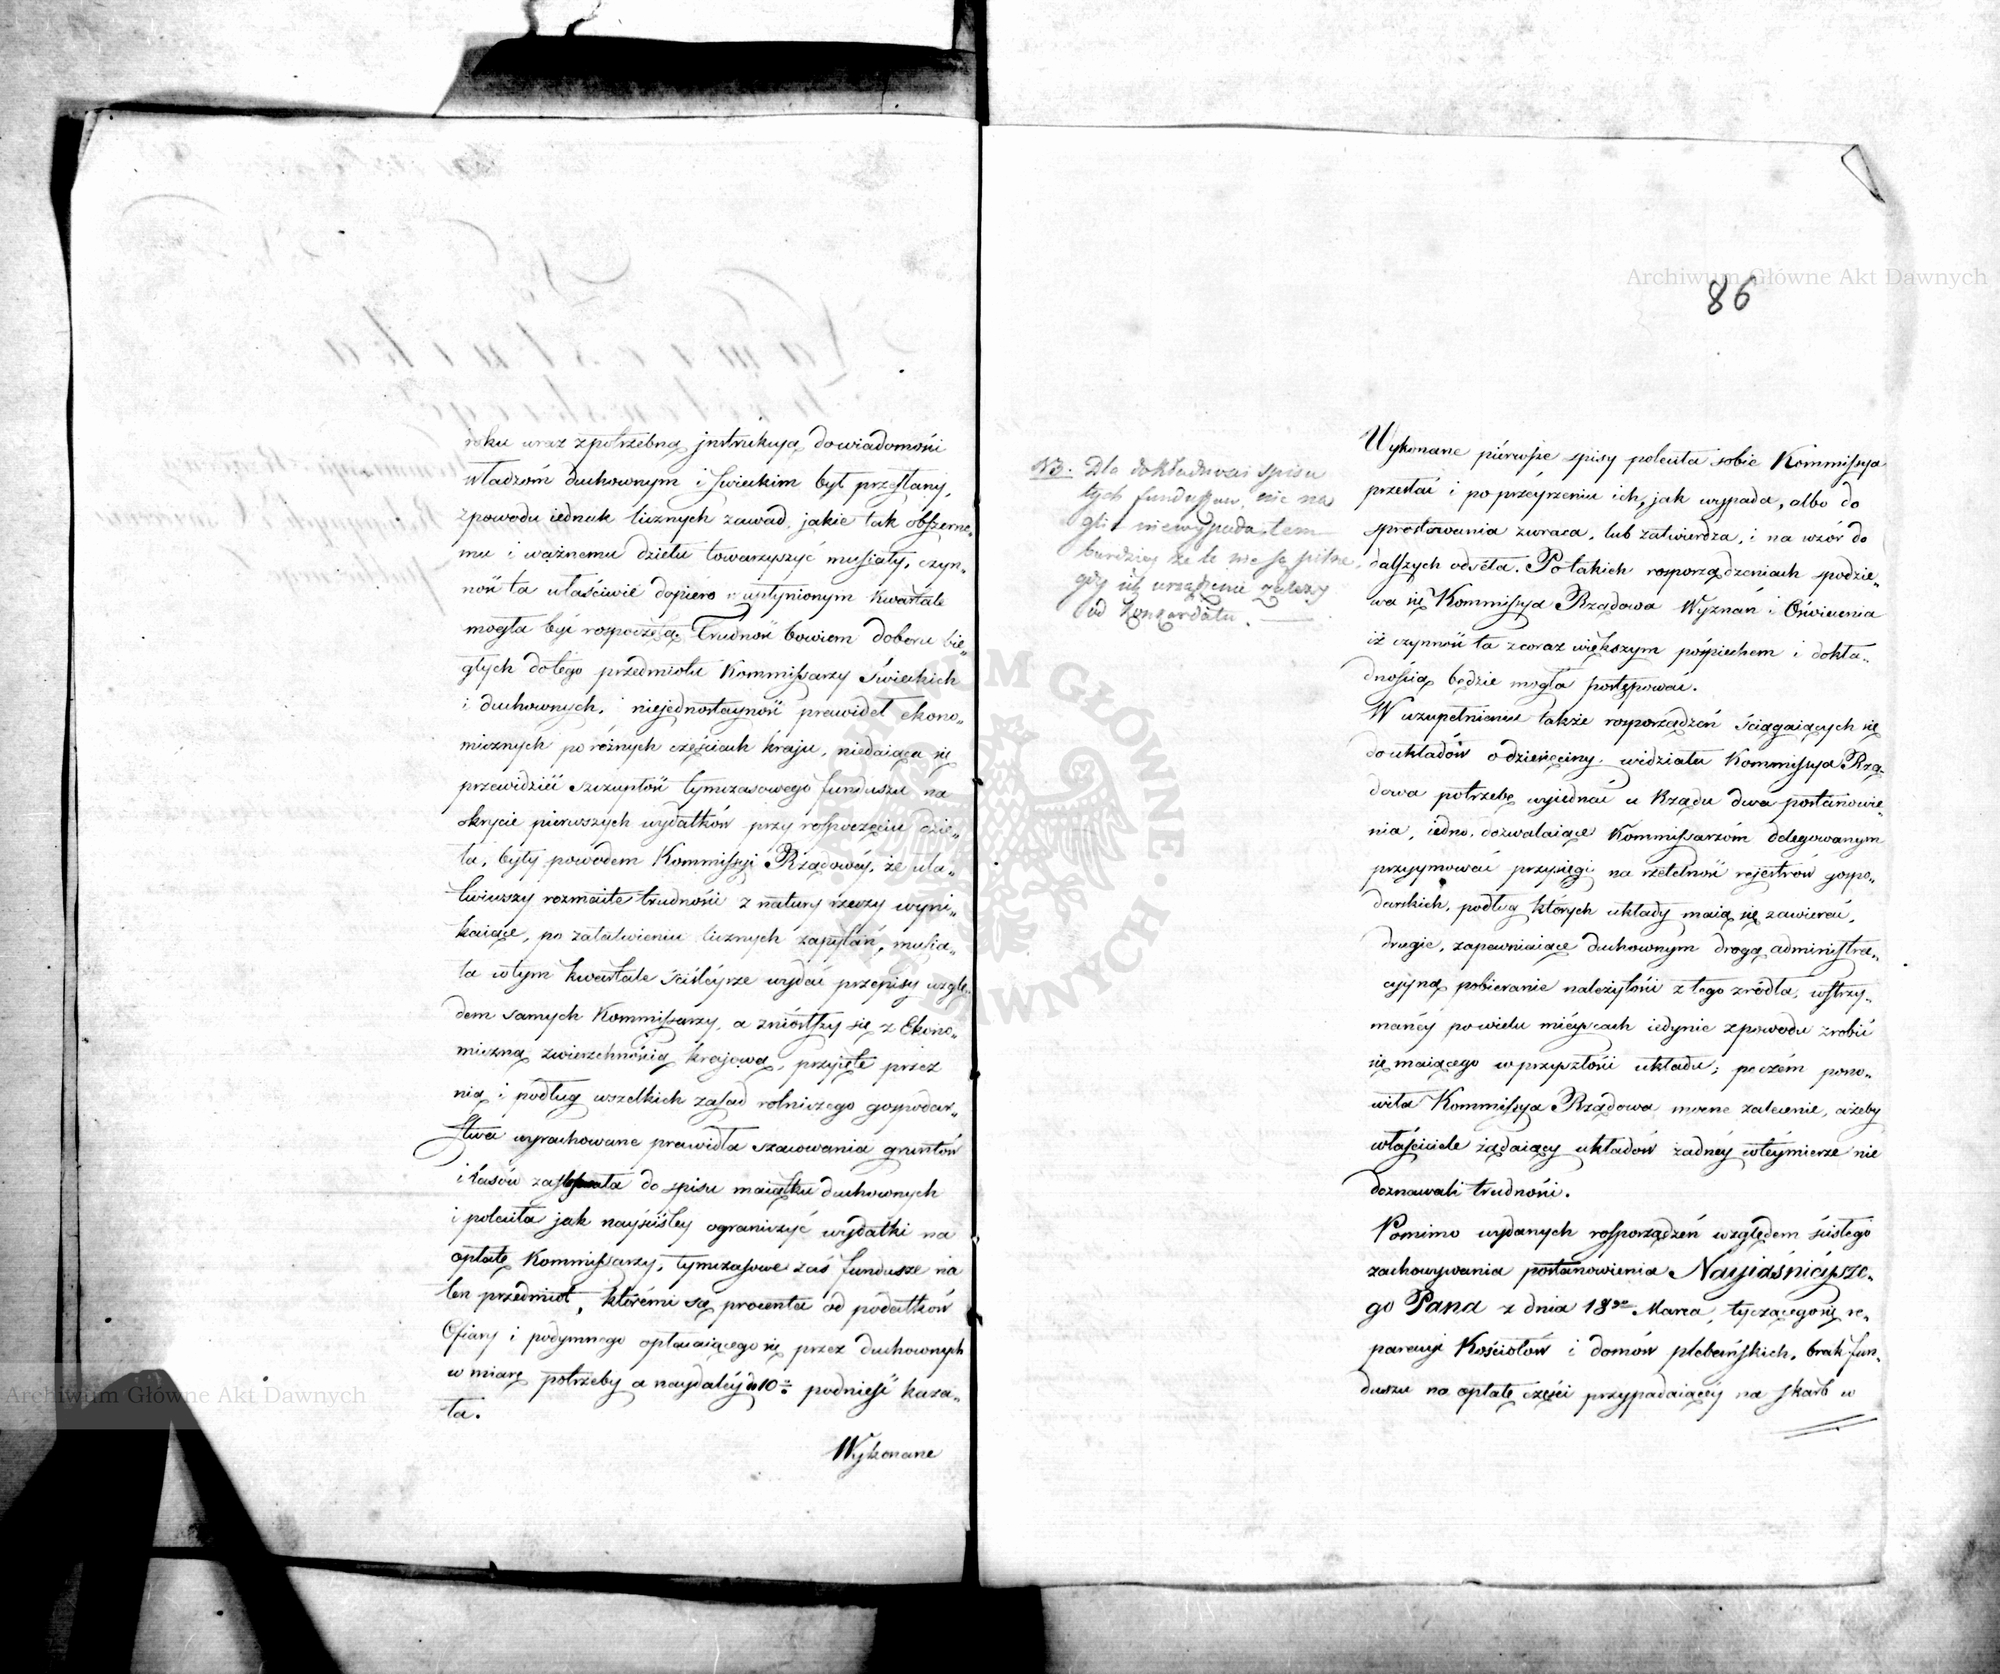 roku wraz z potrzebną instrukcyą do wiadomości
władzom duchownym i świeckim był przesłany,
z powodu iednak licznych zawad, jakie tak obszerne„
mu i ważnemu dziełu towarzyszyć musiały, czyn„
ność ta właściwie dopiero w upłynionym kwartale
mogła być rozpoczęta. Trudność bowiem doboru bie„
głych do tego przedmiotu Kommissarzy świeckich
i duchownych, niejednostayność prawideł ekono„
micznych po różnych częściach kraju, niedaiąca się
przewidzieć szczupłość tymczasowego funduszu na
okrycie pierwszych wydatków przy rospoczęciu dzie„
ła, były powodem Kommissyi Rządowéy, że uła„
twiwszy rozmaite trudności z natury rzeczy wyni„
kaiące, po załatwieniu licznych zapytań, musia„
ła w tym kwartale ściśléysze wydać przepisy wzglę„
dem samych Kommissarzy, a zniósłszy się z Ekono„
miczną zwierzchnością krajową, przyjęte przez
nią i podług wszelkich zasad rolniczego gospodar„
stwa wyrachowane prawidła szacowania gruntów
i lasów do spisu maiątku duchownych
i poleciła jak nayściśley ograniczyć wydatki na
opłatę Kommissarzy, tymczasowe zaś fundusze na
ten przedmiot, którémi są procenta od podatków
Ofiary i podymnego opłacaiącego się przez duchownych
w miarę potrzeby a naydaléy do 10 podnieść kaza„
ła.
Wykonane
86
NB. Dla dokładności spisu
tych funduszów, nic na
glić niewypada, tem
bardziey że te nie są pilne,
gdy ich urządzenie zależy
od Konkordatu.
Wykonane piérwsze spisy poleciła sobie Kommissya
przesłać i po przéyrzeniu ich, jak wypada, albo do
sprostowania zwraca, lub zatwierdza, i na wzór do
dalszych odséła. Po takich rosporządzeniach spodzie„
wa się Kommissya Rządowa Wyznań i Oświecenia
iż czynność ta z coraz większym pośpiechem i dokła„
dnością będzie mogła postępować.
W uzupełnieniu także rosporządzeń ściągaiących się
do układów o dziesięciny, widziała Kommissya Rzą„
dowa potrzebę wyiednać u Rządu dwa postanowie„
nia, iedno, dozwalaiące Kommissarzom delegowanym
przyymować przysięgi na rzetelność rejestrów gospo„
darskich, podług których układy maią się zawierać,
drugie, zapewniaiące duchownym drogą administra„
cyyną pobieranie należytości z tego zródła, wstrzy„
manéy po wielu mieyscach iedynie z powodu zrobić
się maiącego w przyszłości układu; poczém pono„
wiła Kommissya Rządowa mocne zalecenie, ażeby
właściciele żądaiący układów żadnéy w téy mierze nie
doznawali trudności.
Pomimo wydanych rosporządzeń względem ścisłego
zachowywania postanowienia Nayiaśniéysze„
go Pana z dnia 18go Marca, tyczącego się re„
paracyi Kościołów i domów plebańskich, brak fun„
duszu na opłatę części przypadaiącéy na skarb w
Archiwum Główne Akt Dawnych
Archiwum Główne Akt Dawnych
ARCHIWUM GŁÓWNE AKT DAWNYCH